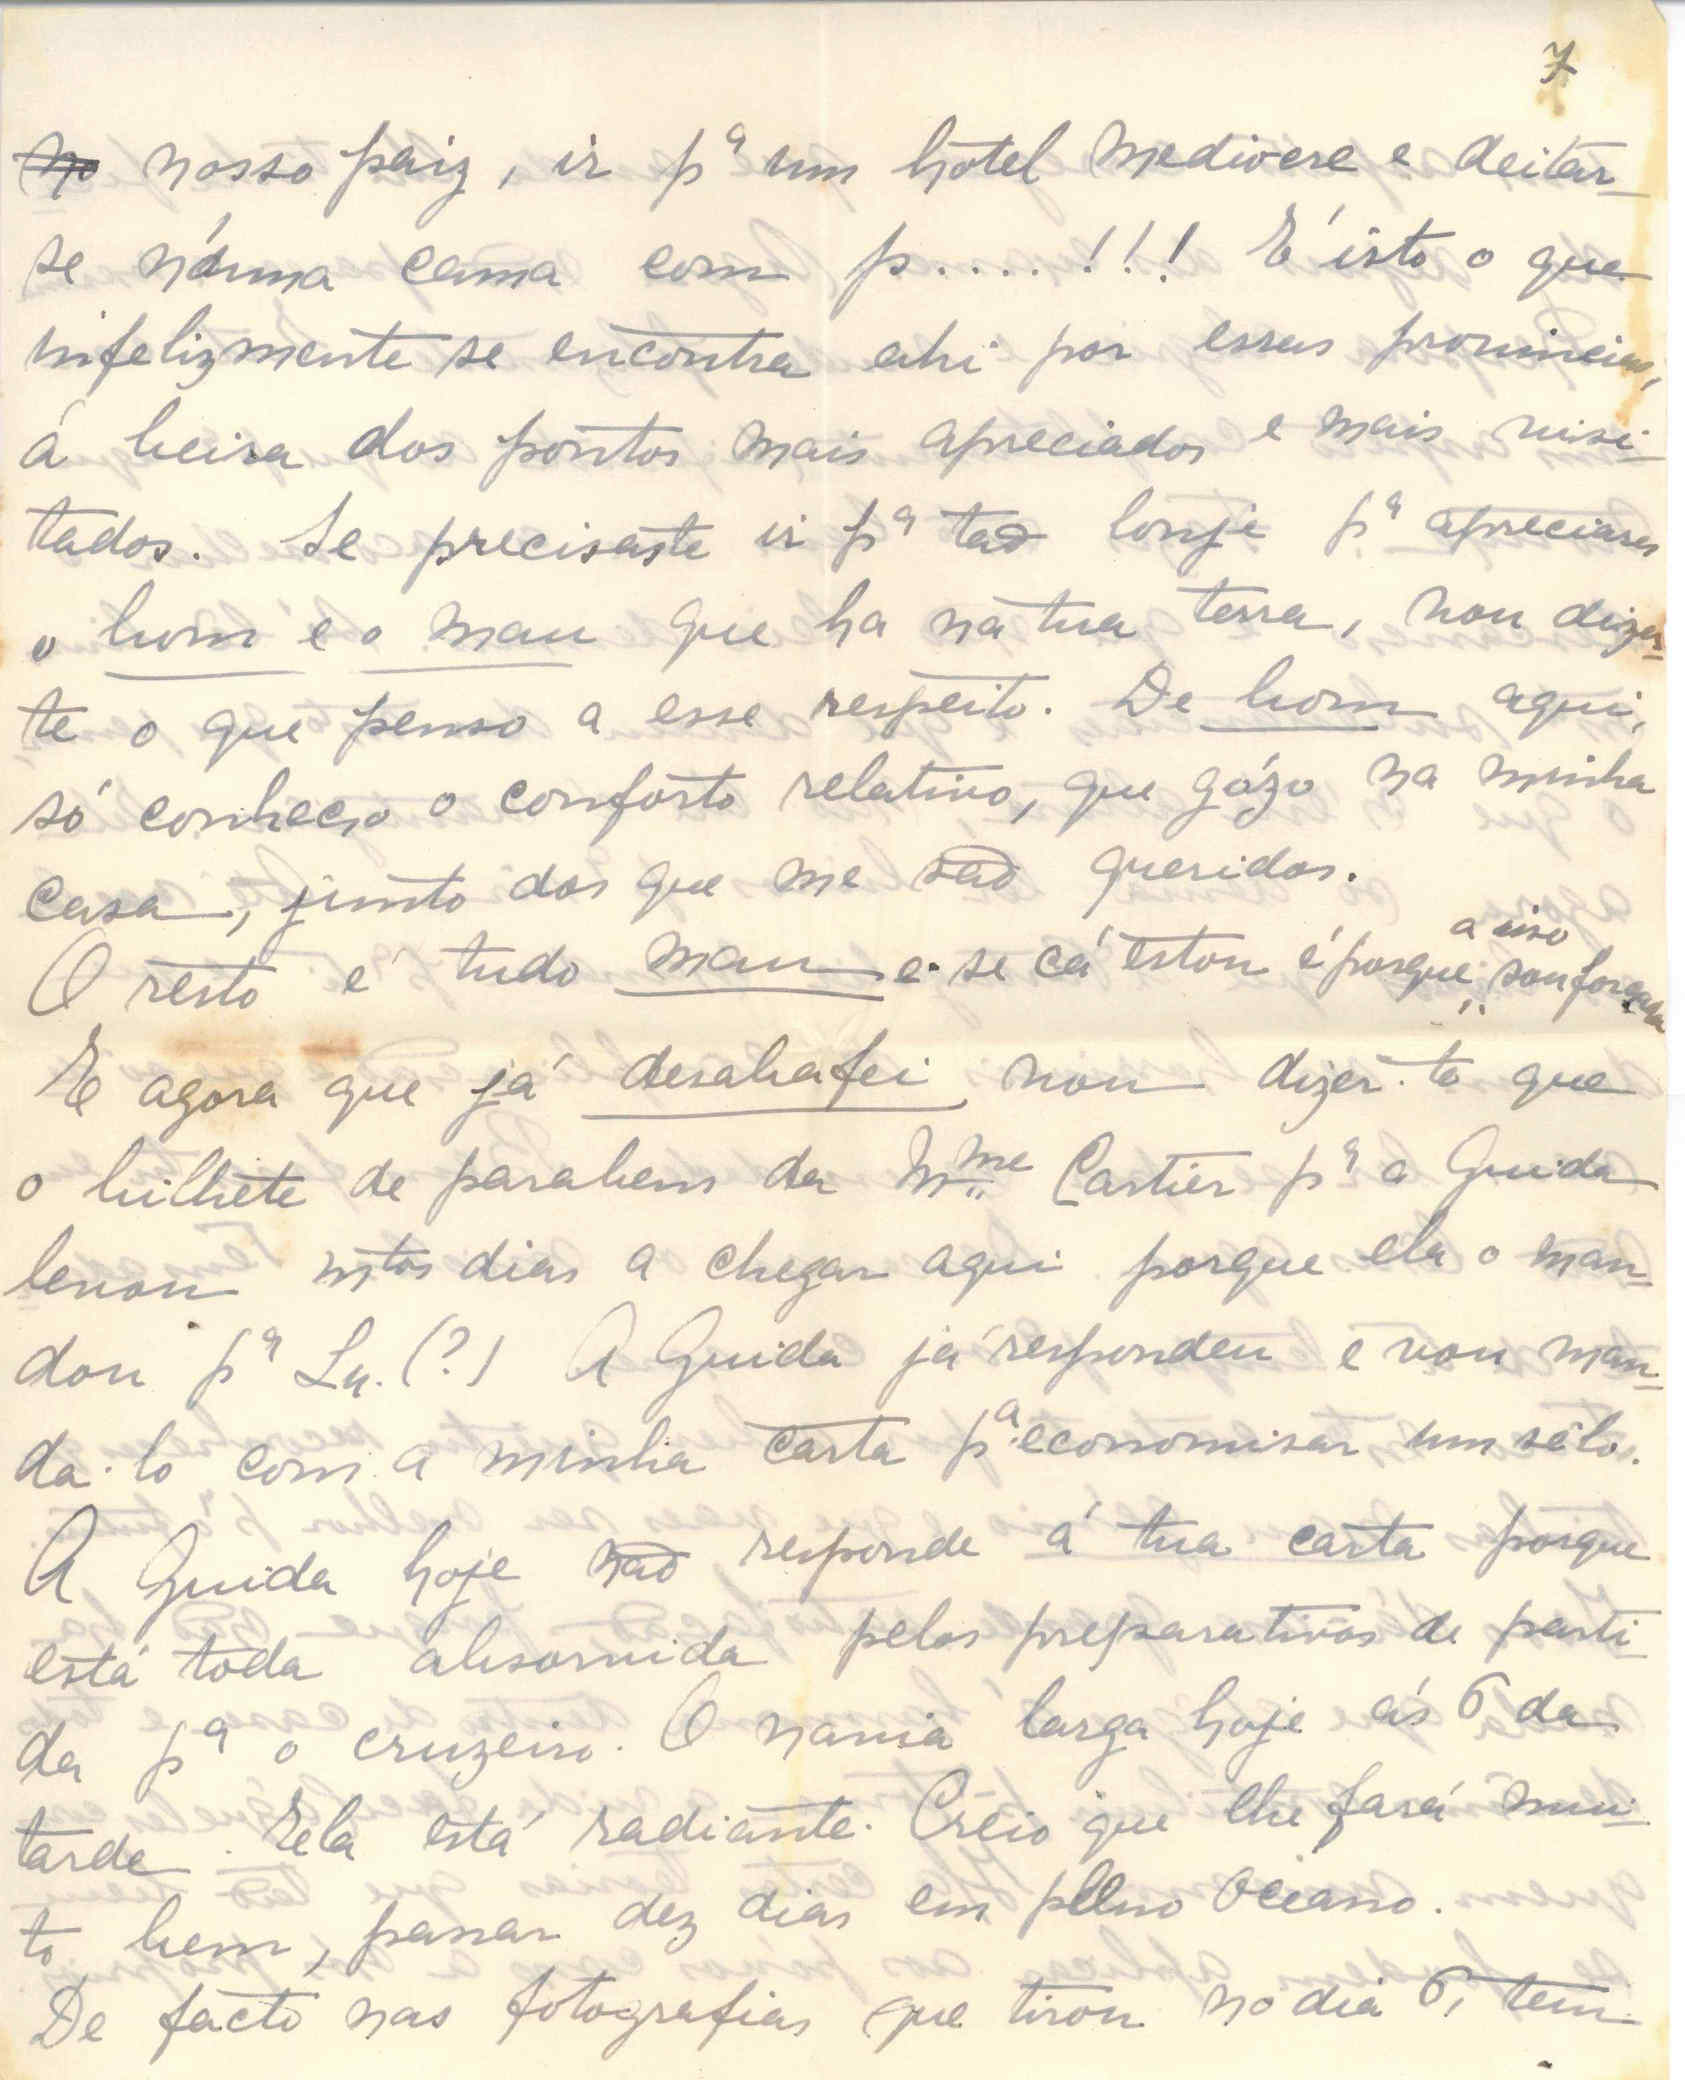 7
no nosso paiz, ir pª um hotel mediocre e deitar-
se n'uma cama com p.....!!! E' isto o que
infelizmente se encontra ahi por essas provincias,
á beira dos pontos mais apreciados e mais visi-
tados. Se precisaste ir pª tão longe pª apreciares
o bom e o mau que ha na tua terra, vou dizer-
te o que penso a esse respeito. De bom aqui,
só conheço o conforto relativo, que gózo na minha
casa, junto dos que me são queridos.
O resto é tudo mau e se cá estou é porque a isso sou forçada
E agora que já desabafei vou dizer-te que
o bilhete de parabens da Mme Cartier pª a Guida
levou mtos dias a chegar aqui porque ela o man-
dou pª Lx. (?) A Guida já respondeu e vou man-
da-lo com a minha carta pª economisar um sêlo.
A Guida hoje não responde á tua carta porque
está toda absorvida pelos preparativos de parti-
da pª o cruzeiro. O navio larga hoje ás 6 da
tarde. Ela está radiante. Creio que lhe fará mui-
to bem, passar dez dias em pleno Oceano.
De facto nas fotografias que tirou no dia 6, tem